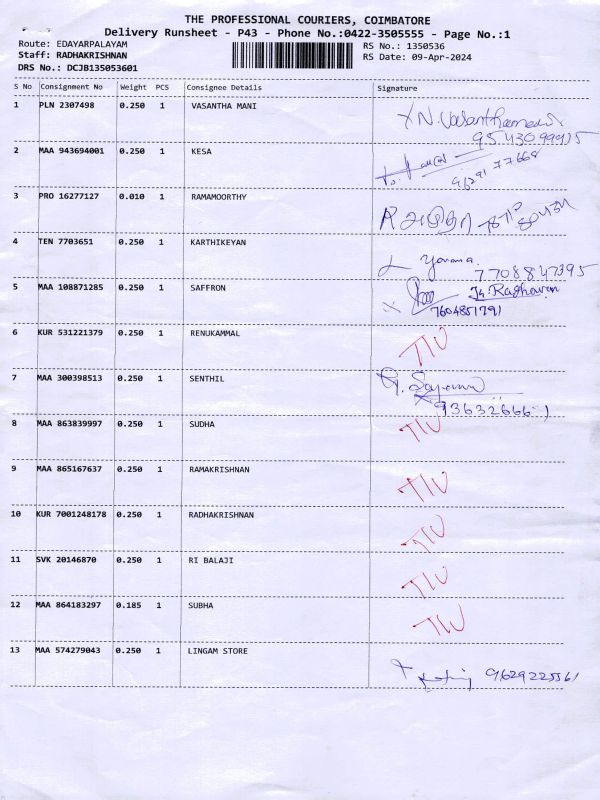 THE PROFESSIONAL COURIERS, COIMBATORE
Delivery Runsheet - P43 - Phone No.:0422-3505555 - Page No.:1
Route: EDAYARPALAYAM RS No.: 1350536
Staff: RADHAKRISHNAN RS Date: 09-Apr-2024
DRS No.: DCJB135053601
S No Consignment No Weight PCS Consignee Details Signature
1 PLN 2307498 0.250 1 VASANTHA MANI
2 MAA 943694001 0.250 1 KESA
3 PRO 16277127 0.010 1 RAMAMOORTHY
4 TEN 7703651 0.250 1 KARTHIKEYAN
7708847395
5 MAA 108871285 0.250 1 SAFFRON Raghavan
7604851791
6 KUR 531221379 0.250 1 RENUKAMMAL
7 MAA 300398513 0.250 1 SENTHIL
8 MAA 863839997 0.250 1 SUDHA
9 MAA 865167637 0.250 1 RAMAKRISHNAN
10 KUR 7001248178 0.250 1 RADHAKRISHNAN
11 SVK 20146870 0.250 1 RI BALAJI
12 MAA 864183297 0.185 1 SUBHA
13 MAA 574279043 0.250 1 LINGAM STORE
9629225561